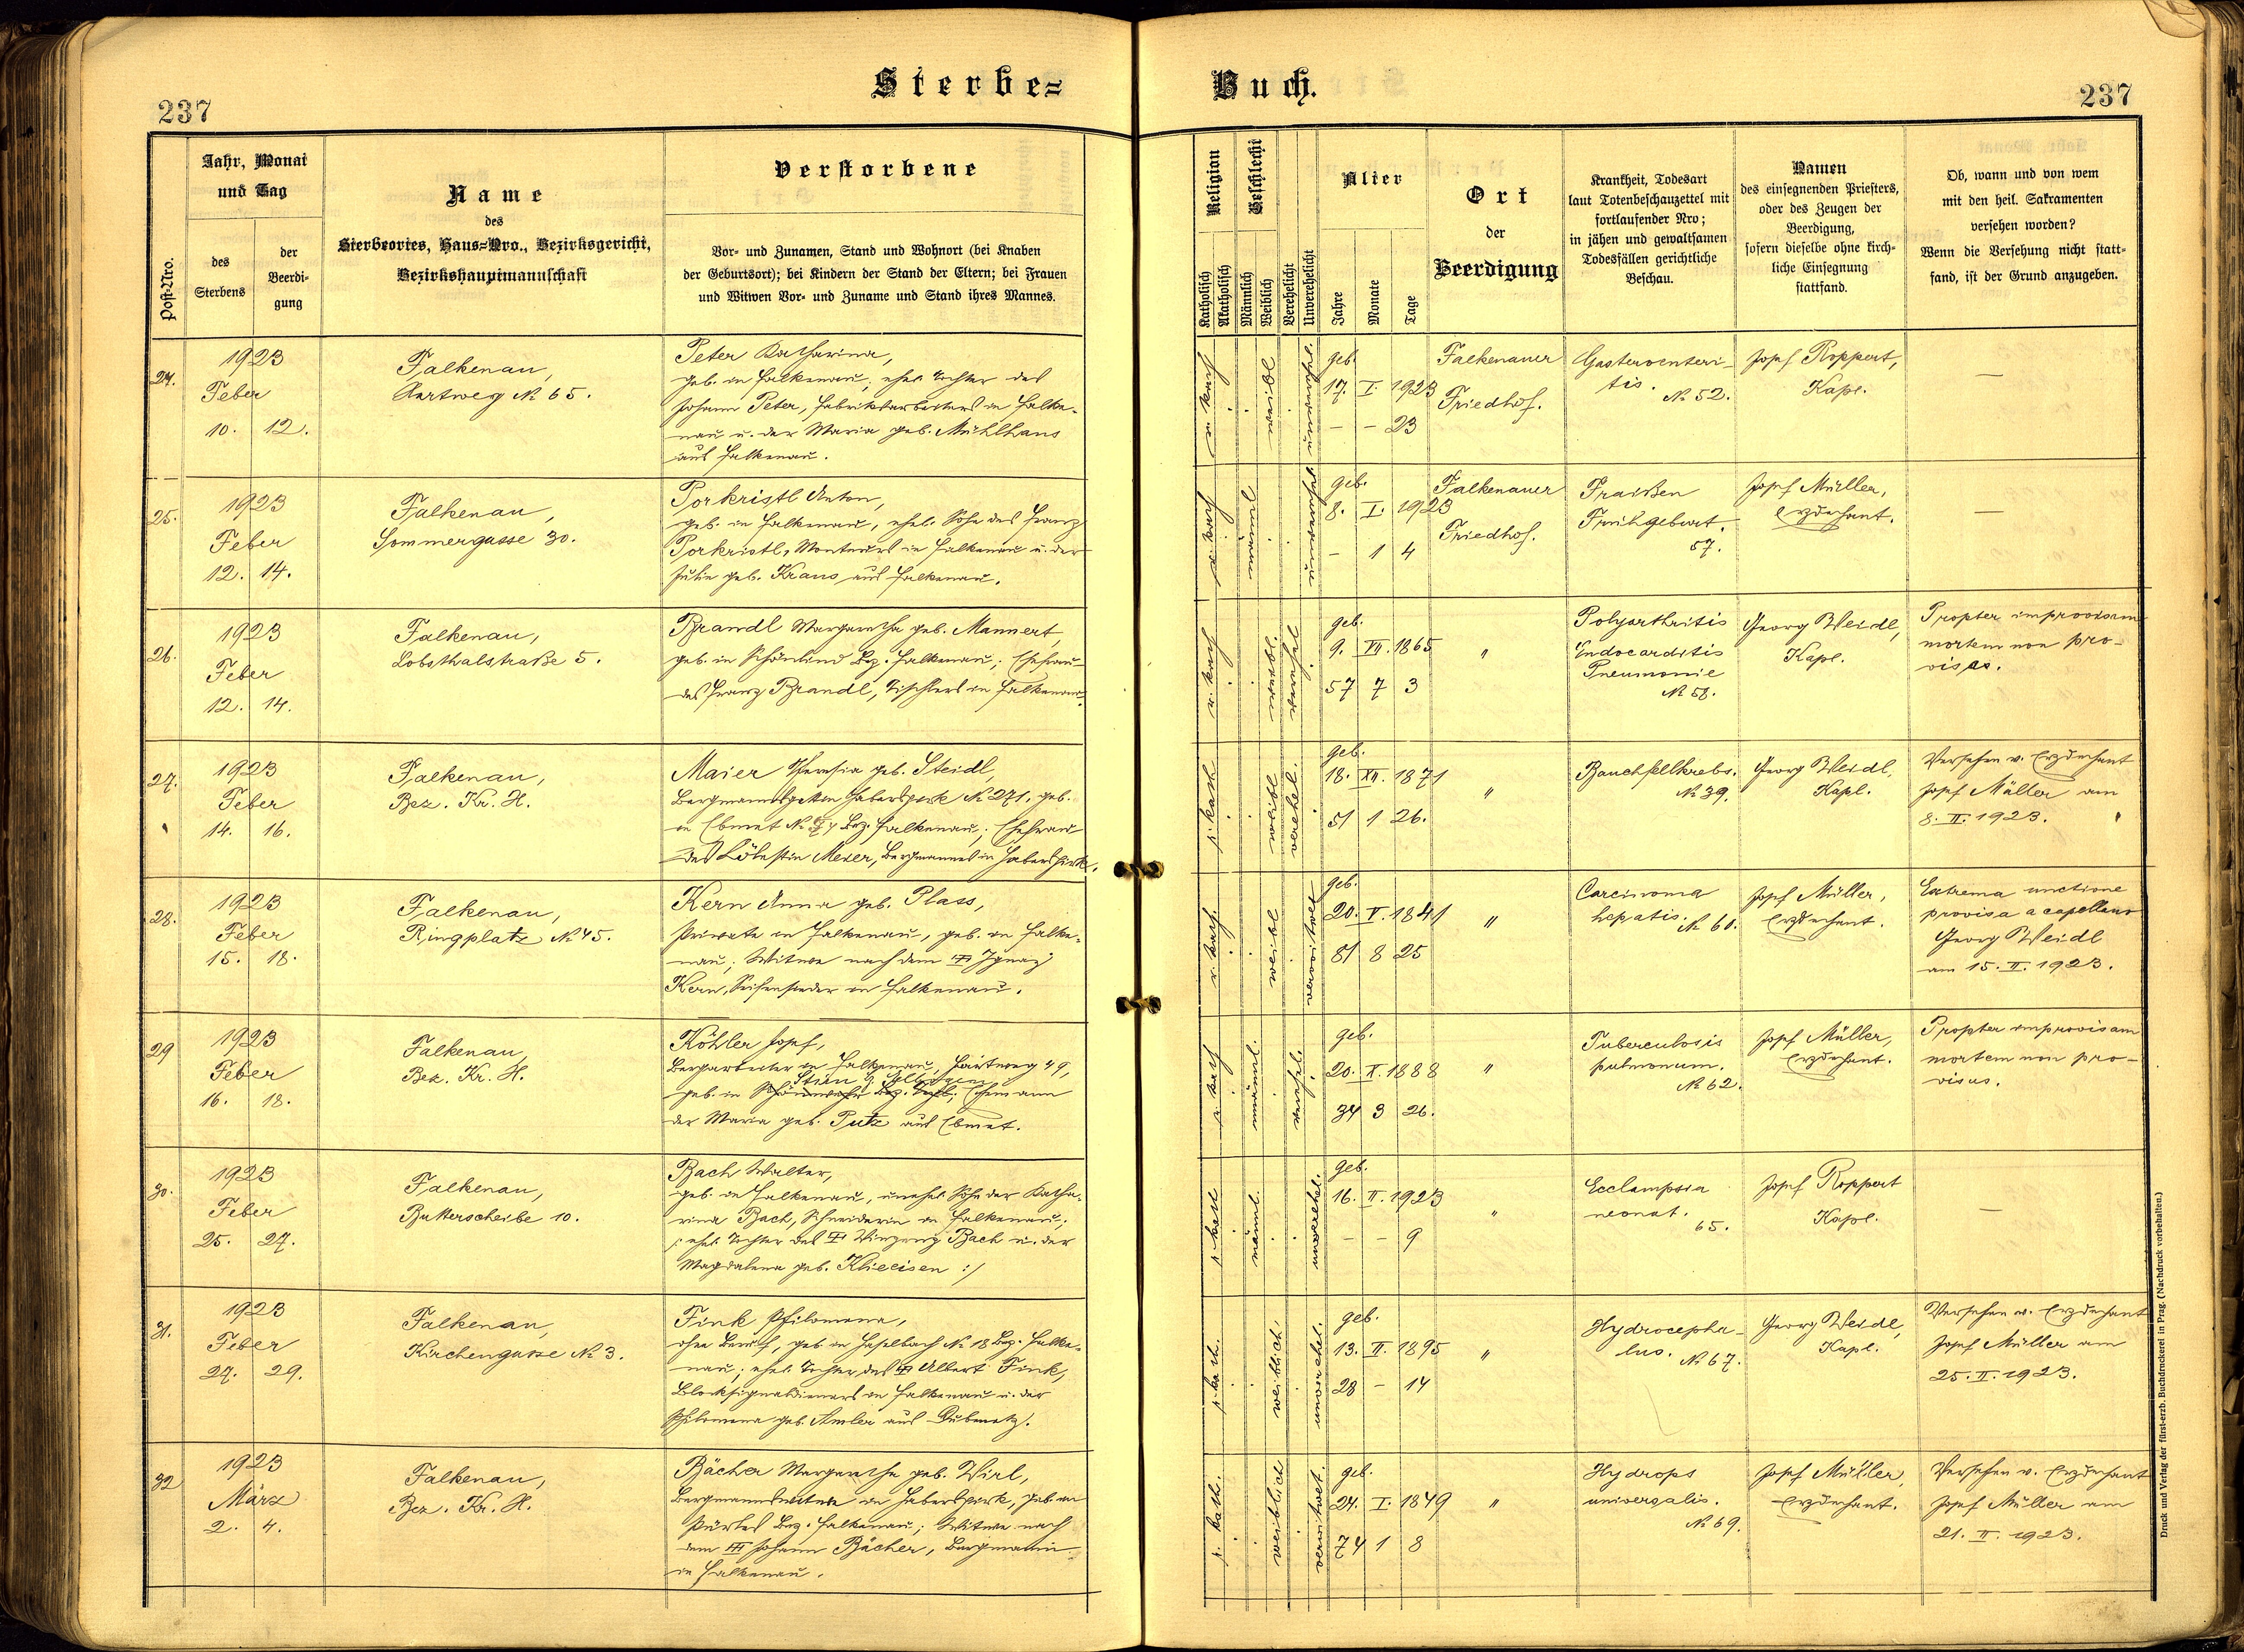 Sterbe=
Buch.
237
237
Post-Nro.
Jahr, Monat
und Tag
des
Sterbens
der
Beerdi-
gung
Name
des
Sterbeortes, Haus=Nro., Bezirksgericht,
Bezirkshauptmannschaft
Verstorbene
Vor- und Zunamen, Stand und Wohnort (bei Knaben
der Geburtsort); bei Kindern der Stand der Eltern; bei Frauen
und Witwen Vor- und Zuname und Stand ihres Mannes.
Religion
Katholisch
Akatholisch
Geschlecht
Männlich
Weiblich
Verehelicht
Unverehelicht
Alter
Jahre
Monate
Tage
Ort
der
Beerdigung
Krankheit, Todesart
laut Totenbeschauzettel mit
fortlaufender Nro;
in jähen und gewaltsamen
Todesfällen gerichtliche
Beschau.
Namen
des einsegnenden Priesters,
oder des Zeugen der
Beerdigung,
sofern dieselbe ohne kirch-
liche Einsegnung
stattfand.
Ob, wann und von wem
mit den heil. Sakramenten
versehen worden?
Wenn die Versehung nicht statt-
fand, ist der Grund anzugeben.
24.
1923
Feber
10. 12.
Falkenau,
Hartweg № 65.
Peter Katharina,
geb. in Falkenau, ehel. Tochter des
Johann Peter, Fabriksarbeiters in Falke-
nau u. der Maria geb. Mühlhans
aus Falkenau.
r. kath
weibl
unverehel.
geb.
17. I 1923
– – 23
Falkenauer
Friedhof.
Gasteroenteri-
tis.
№ 52.
Josef Roppert,
Kapl.
—
25.
1923
Feber
12. 14.
Falkenau,
Sommergasse 30.
Porkristl Anton,
geb. in Falkenau, ehel. Sohn des Franz
Porkristl, Monteurs in Falkenau u. der
Julie geb. Kraus aus Falkenau.
r. kath
männl
unverehel
geb.
8. I. 1923
– 1 4
Falkenauer
Friedhof.
Fraißen
Frühgeburt.
57.
Josef Müller,
Erzdechant.
—
26.
1923
Feber
12. 14.
Falkenau,
Lobsthalstraße 5.
Brandl Margaretha geb. Mannert,
geb. in Schönlind Bez. Falkenau; Ehefrau
des Franz Brandl, Tischlers in Falkenau.
r. kath
weibl
verehel
geb.
9. VII. 1865
57 7 3
"
Polyarthritis
Endocarditis
Pneumonie
№ 58.
Georg Weidl,
Kapl.
Propter improvisam
mortem non pro-
visa.
27.
1923
Feber
14. 16.
Falkenau,
Bez. Kr. H.
Maier Theresia geb. Steidl,
Bergmannsgattin Haberspirk № 271, geb.
in Ebmet № Bez. Falkenau; Ehefrau
des Cölestin Meier, Bergmannes in Haberspirk.
r. kath
weibl
verehel.
geb.
18. XII. 1871
51 1 26.
"
Bauchfellkrebs.
№ 39.
Georg Weidl,
Kapl.
Versehen v. Erzdechant
Josef Müller am
8. II. 1923.
28.
1923
Feber
15. 18.
Falkenau,
Ringplatz № 45.
Kern Anna geb. Plass,
Private in Falkenau, geb. in Falke-
nau; Witwe nach dem † Ignaz
Kern, Seifensieder in Falkenau.
r. kath.
weibl
verwitwet
geb.
20. V. 1841
81 8 25
"
Carcinoma
hepatis.
№ 60.
Josef Müller,
Erzdechant.
Extrema unctione
provisa a capellano
Georg Weidl
am 15. II. 1923.
29
1923
Feber
16. 18.
Falkenau,
Bez. Kr. H.
Köhler Josef,
Bergarbeiter in Falkenau, Hartweg 49,
geb. in Bez. Ehemann
der Maria geb. Putz aus Ebmet.
r. kath
männl.
verehel.
geb.
20. X. 1888
34 3 26.
"
Tuberculosis
pulmonum.
№ 62.
Josef Müller,
Erzdechant.
Propter improvisam
mortem non pro-
visus.
30.
1923
Feber
25. 27.
Falkenau,
Butterscheibe 10.
Bach Walter,
geb. in Falkenau, unehel. Sohn der Katha-
rina Bach, Schneiderin in Falkenau;
/: ehel. Tochter des † Bach u. der
Magdalena geb. Klieeisen :/
r. kath
männl.
unverehel.
geb.
16. II. 1923
– – 9
"
Ecclampsia
neonat.
65.
Josef Roppert
Kapl.
—
31.
1923
Feber
27. 29.
Falkenau,
Kirchengasse № 3.
Fink Philomena,
ohne Beruf, geb. in Haselbach № 18 Bez. Falke-
nau; ehel. Tochter des † Albert Fink,
Blocksignaldieners in Falkenau u. der
Philomena geb. Amler aus Dubenetz.
r. kath.
weiblich.
unverehel.
geb.
13. II. 1895
28 – 14
"
Hydrocepha-
lus.
№ 67.
Georg Weidl,
Kapl.
Versehen v. Erzdechant
Josef Müller am
25. II. 1923.
32
1923
März
2. 4.
Falkenau,
Bez. Kr. H.
Bächer Margaretha geb. Wirl,
Bergmannswitwe in Haberspirk, geb. in
Pürles Bez. Falkenau; Witwe nach
dem † Johann Bächer, Bergmann
in Falkenau.
r. kath.
weiblich
verwitwet.
geb.
24. I. 1849
74 1 8
"
Hydrops
universalis.
№ 69.
Josef Müller,
Erzdechant.
Versehen v. Erzdechant
Josef Müller am
21. II. 1923.
Druck und Verlag der fürst-erzb. Buchdruckerei in Prag. (Nachdruck vorbehalten.)